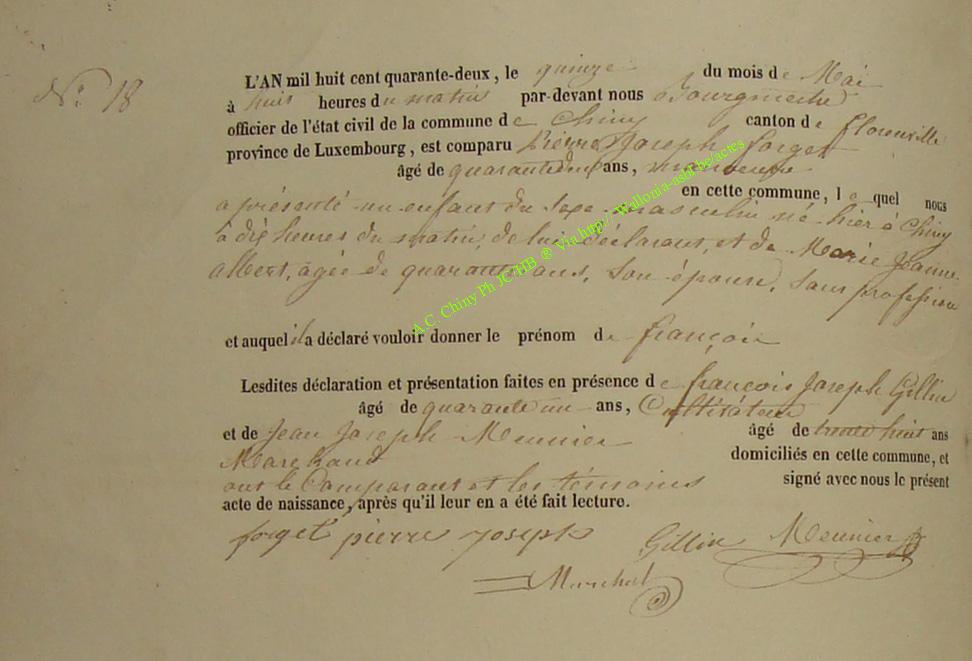 N° 18
L'AN mil huit cent quarante-deux, le quinze du mois de Mai
à huit heures du matin par-devant nous Bourgmestre
officier de l'état civil de la commune de Chiny canton de florenville
province de Luxembourg, est comparu Pierre Joseph forget
âgé de quarante ans, manoeuvre
en cette commune, lequel nous
a présenté un enfant du sexe masculin né hier à Chiny
à dix heures du matin, de lui déclarant, et de Marie Jeanne
albert, agée de quarante ans, son épouse, sans profession
et auquel il a déclaré vouloir donner le prénom de françois
Lesdites déclaration et présentation faites en présence de françois Joseph Gillin
âgé de quarante un ans, Cultivateur
et de Jean Joseph Meunier âgé de trente huit ans
Marchand domiciliés en cette commune, et
ont le Comparant et les témoins signé avec nous le présent
acte de naissance, après qu'il leur en a été fait lecture.
forget pierre joseph Gillin Meunier
Marchal
A.C. Chiny Ph JC/HB ® Via http:// Wallonia-asbl.be/actes